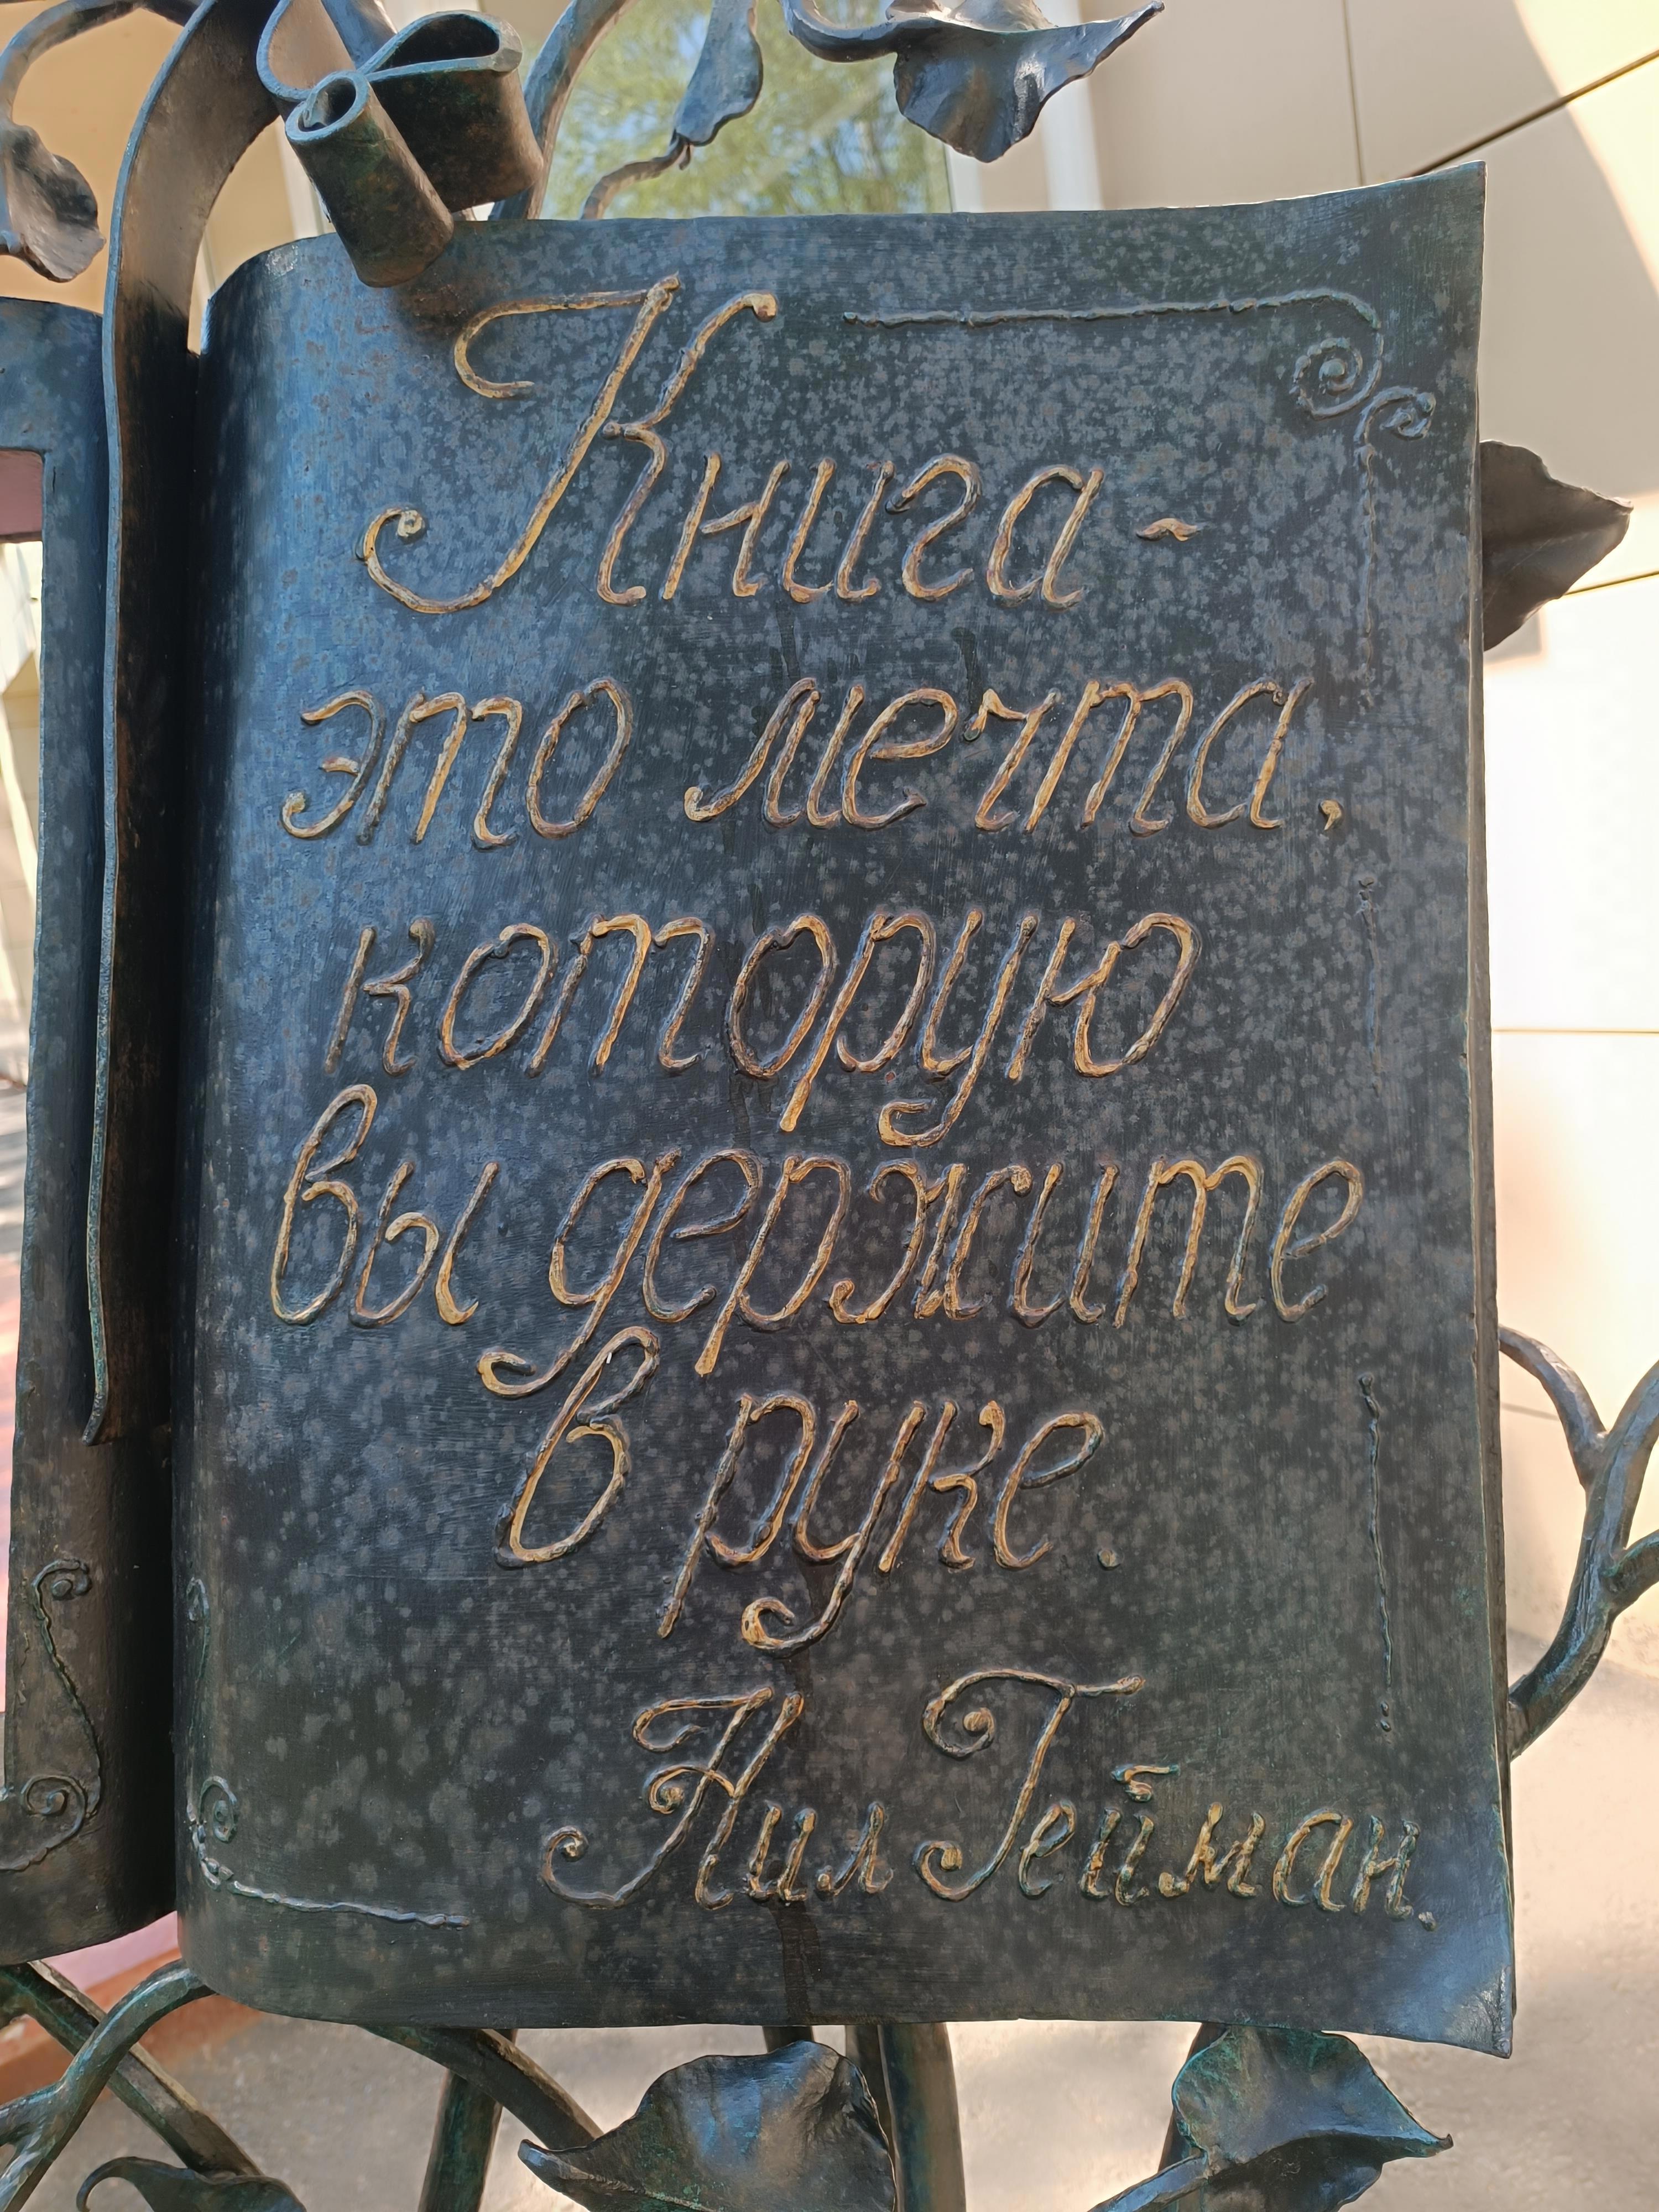 Книга -
это мечта,
которую
вы держите
в руке.
Нил Гейман.